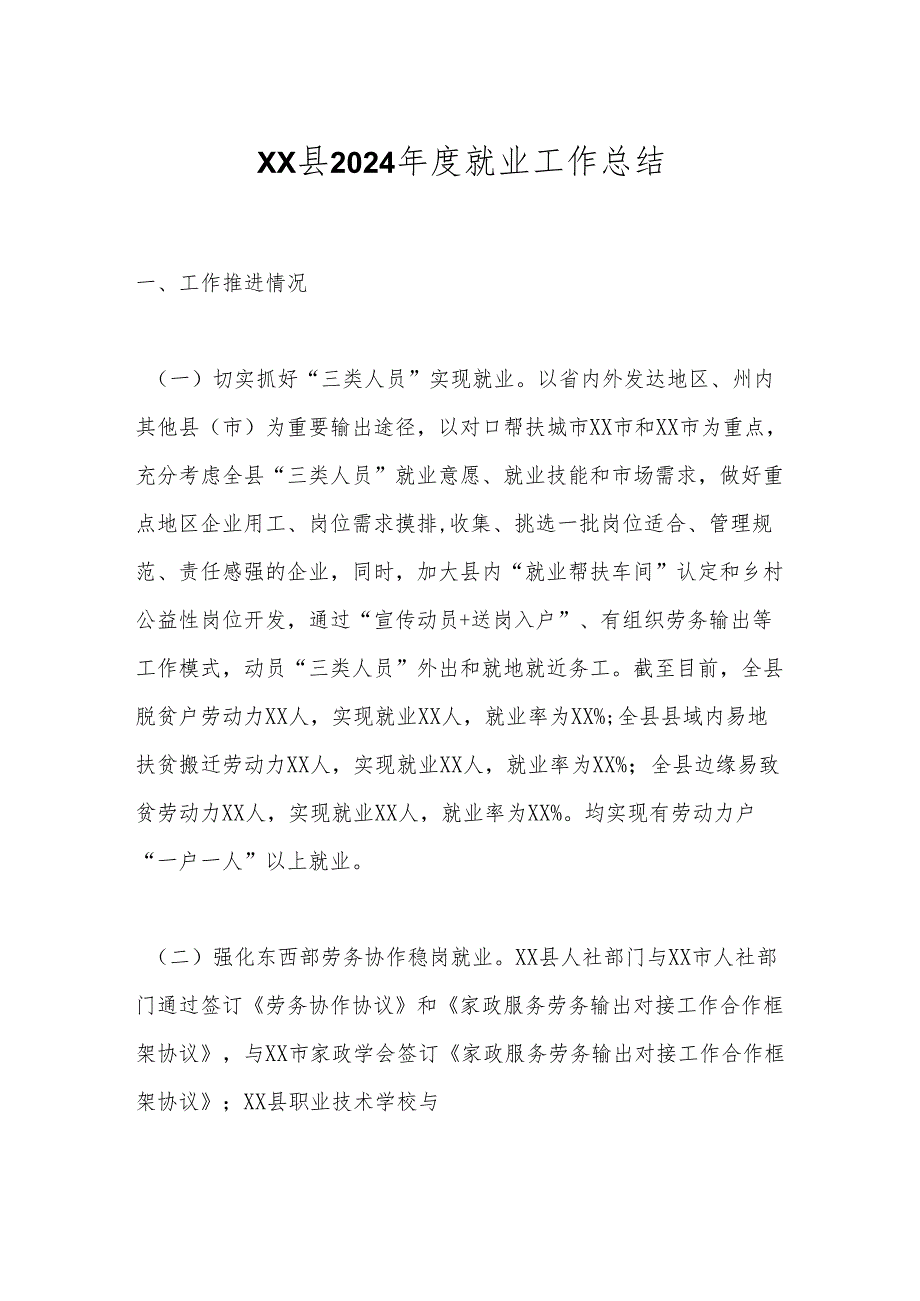 XX县2024年度就业工作总结
一、工作推进情况
（一）切实抓好“三类人员”实现就业。以省内外发达地区、州内
其他县（市）为重要输出途径，以对口帮扶城市XX市和XX市为重点，
充分考虑全县“三类人员”就业意愿、就业技能和市场需求，做好重
点地区企业用工、岗位需求摸排,收集、挑选一批岗位适合、管理规
范、责任感强的企业，同时，加大县内“就业帮扶车间”认定和乡村
公益性岗位开发，通过“宣传动员+送岗入户”、有组织劳务输出等
工作模式，动员“三类人员”外出和就地就近务工。截至目前，全县
脱贫户劳动力XX人，实现就业XX人，就业率为XX%;全县县域内易地
扶贫搬迁劳动力XX人，实现就业XX人，就业率为XX%；全县边缘易致
贫劳动力XX人，实现就业XX人，就业率为XX%。均实现有劳动力户
“一户一人”以上就业。
（二）强化东西部劳务协作稳岗就业。XX县人社部门与XX市人社部
门通过签订《劳务协作协议》和《家政服务劳务输出对接工作合作框
架协议》，与XX市家政学会签订《家政服务劳务输出对接工作合作框
架协议》；XX县职业技术学校与